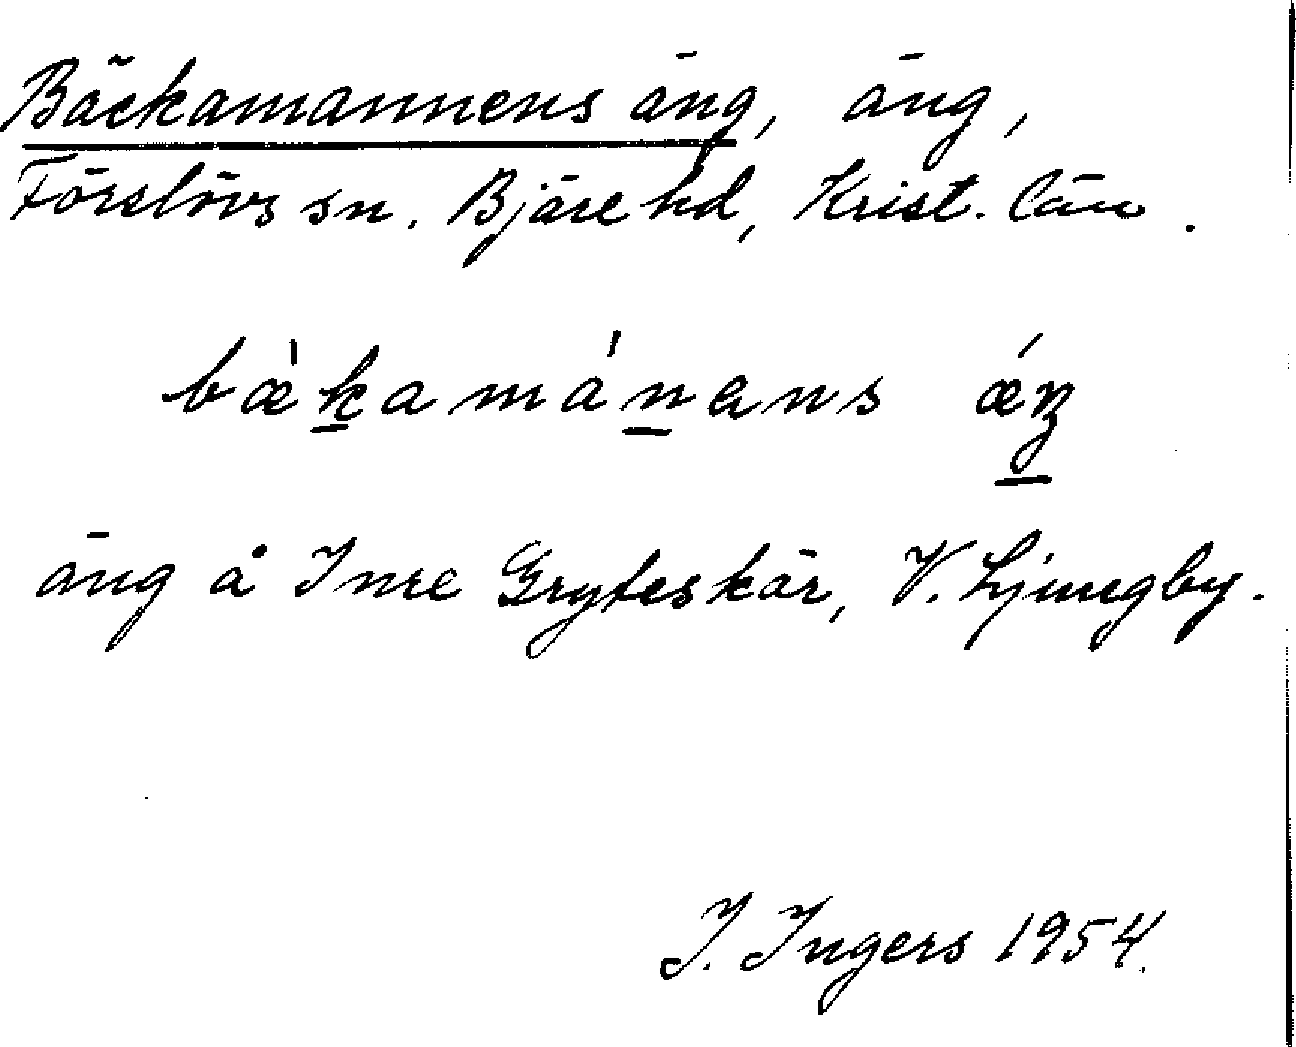 Bäckamannens äng, äng,
Förslövs sn. Bjäre hd, Krist. län.
bæ̀k̲amán̲ans ǽŋ̲
äng å Inre Gryteskär, V. Ljungby.
I. Ingers 1954.